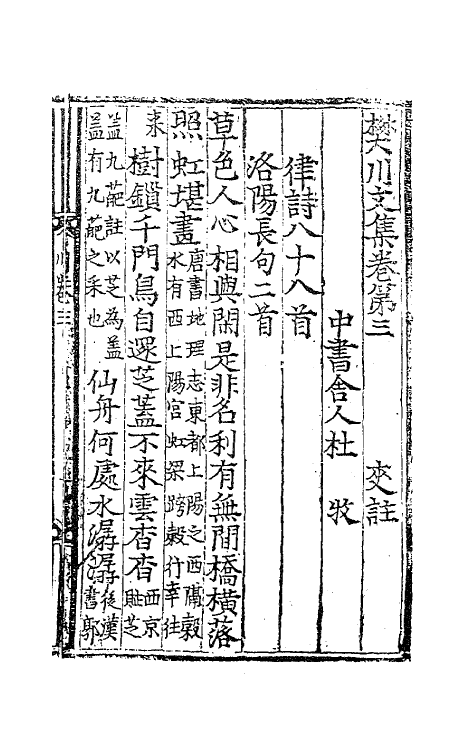 樊川文集卷第三 夾註
中書舍人杜 牧
律詩八十八首
洛陽長句二首
草色人心相與閑是非名利有無間橋橫落
照虹堪畫唐書地理志東都上陽之西隔穀水有西上陽宮虹梁跨穀行幸往
来樹鎖千門鳥自還芝蓋不來雲杳杳西京賦芝
盖九葩註以芝為盖盖有九葩之采也仙舟何處水潺潺後漢書郭
川卷三